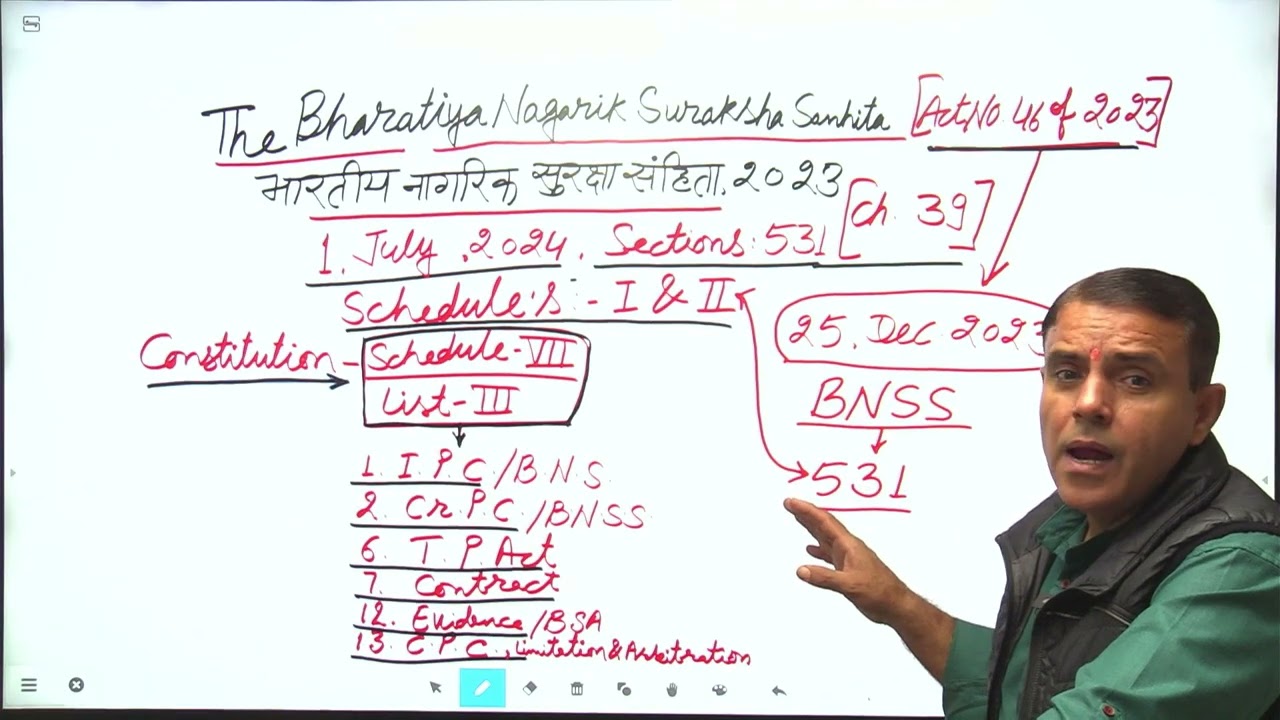 The Bharatiya Nagarik Suraksha Sanhita [Act No. 46 of 2023]
भारतीय नागरिक सुरक्षा संहिता, २०२३
1. July, 2024. Sections: 531 [Ch. 39]
Schedule's :- I & II
25. Dec 2023
Constitution - Schedule-VII
List-III
BNSS
531
1. I.P.C./B.N.S.
2. Cr.P.C./BNSS
6. T.P. Act
7. Contract
12. Evidence/BSA
13. C.P.C., Limitation & Arbitration